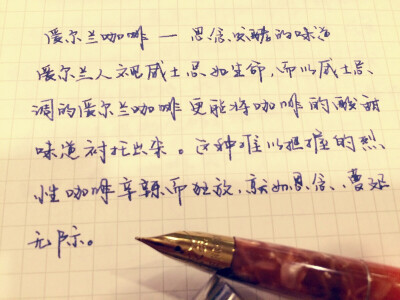 爱尔兰咖啡 — 思念发酵的味道
爱尔兰人视威士忌如生命,而以威士忌
调的爱尔兰咖啡更能将咖啡的酸甜
味道衬托出来。这种难以捉摸的烈
性咖啡辛辣而狂放,就如思念、漫延
无际。